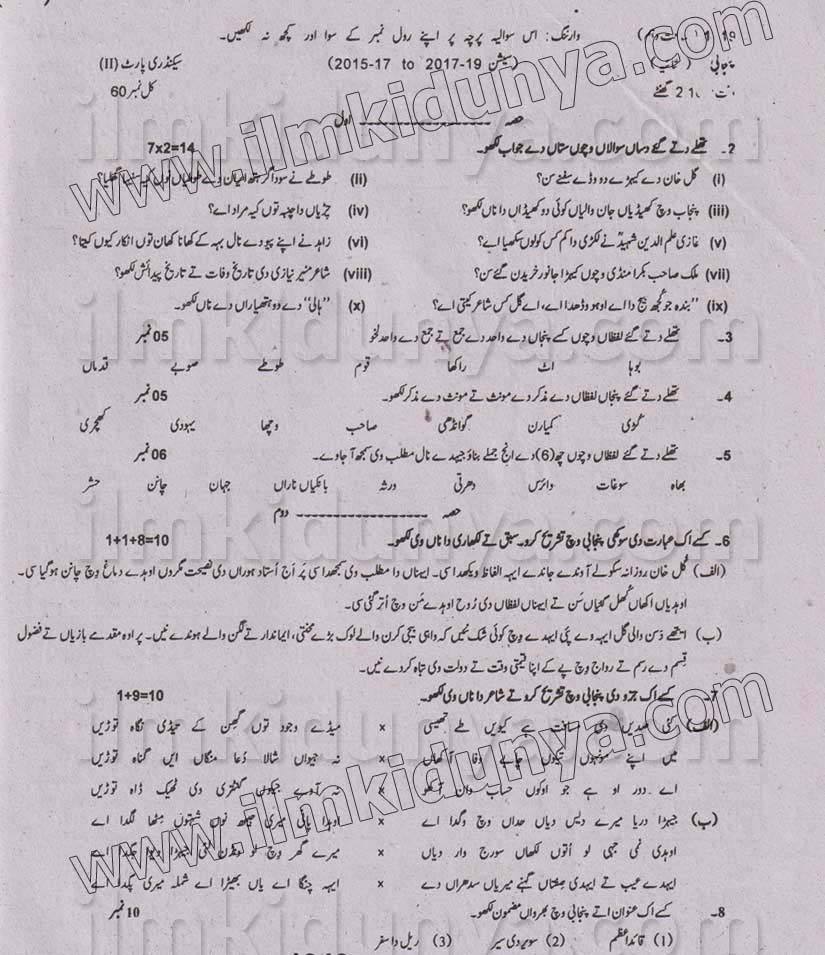 وارننگ: اس سوالیہ پرچہ پر اپنے رول نمبر کے سوا اور کچھ نہ لکھیں۔
پنجابی (سیشن 2015-17 to 2017-19) سیکنڈری پارٹ (II)
گھنٹے کل نمبر 60
حصہ اول
2۔ تھلے دتے گئے دساں سوالاں وچوں ستاں دے جواب لکھو۔ 7x2=14
(i) گل خان دے کیہڑے دو وڈے سفنے سن؟ (ii) طوطے نے سوداگر ہتھ
(iii) پنجاب وچ کھیڈیاں جان والیاں کوئی دو کھیڈاں دا ناں لکھو؟ (iv) چڑیاں دا چنبہ توں کیہ مراد اے؟
(v) غازی علم الدین شہیدؒ نے لکڑی دا کم کس کولوں سکھیا اے؟ (vi) زاہد نے اپنے پیو دے نال بہہ کے کھانا کھان توں انکار کیوں کیتا؟
(vii) ملک صاحب بکرا منڈی وچوں کیہڑا جانور خریدن گئے سن؟ (viii) شاعر منیر نیازی دی تاریخ وفات تے تاریخ پیدائش لکھو؟
(ix) "بندہ جو کُجھ بیج دا اے اوہو وڈھدا اے، اے گل کس شاعر کیتی اے؟ (x) "ہالی" دے دو ہتھیاراں دے ناں لکھو۔
3۔ تھلے دتے گئے لفظاں وچوں کسے پنجاں دے واحد دے جمع تے جمع دے واحد لکھو 05 نمبر
بوہا اٹ راکھا قوم طوطے صوبے قدماں
4۔ تھلے دتے گئے پنجاں لفظاں دے مذکر دے مونث تے مونث دے مذکر لکھو۔ 05 نمبر
کڑی کمیارن گوانڈھی صاحب وچھا یہودی کھچری
5۔ تھلے دتے گئے لفظاں وچوں چھ (6) دے انج جملے بناؤ جیہدے نال مطلب وی سمجھ آ جاوے۔ 06 نمبر
بھاہ سوغات وائرس دھرتی ورثہ بانکیاں ناراں جہان چانن حشر
حصہ دوم
6۔ کسے اک عبارت دی سوکھی پنجابی وچ تشریح کرو۔ سبق تے لکھاری دا ناں وی لکھو۔ 1+1+8=10
(الف) گل خان روزانہ سکولے آوندے جاندے ایہہ الفاظ ویکھدا سی۔ ایہناں دا مطلب وی سمجھدا سی پر اَج اُستاد ہوراں دی نصیحت مگروں اوہدے دماغ وِچ چانن ہو گیا سی۔
اوہدیاں اکھاں کُھل گئیاں سَن تے ایہناں لفظاں دی رُوح اوہدے مَن وِچ اُتر گئی سی۔
(ب) ایتھے دَسن والی گل ایہہ وے پئی ایہدے وِچ کوئی شک نئیں کہ واہی بیجی کرن والے لوک بڑے محنتی، ایماندار تے لگن والے ہوندے نیں۔ پر اوہ مقدمے بازیاں تے فضول
قسم دے رسم تے رواج وِچ پے کے اپنا قیمتی وقت تے دولت وی تباہ کردے نیں۔
7۔ کسے اک جزو دی پنجابی وچ تشریح کرو تے شاعر دا ناں وی لکھو۔ 1+9=10
(الف) کئی صدیں دی مسافت ہے کیویں طے تھیسی x میڈے وجود توں گھن کے تیڈی نگاہ توڑیں
میں اپنے تیکوں چاہے وفا آکھاں x نہ جیواں شالا دُعا منگاں ایں گناہ توڑیں
اے دور او ہے جو اوکوں حساب وان آکھو x نہ آوے جیکوں گنتری دی ٹھیک ڈاہ توڑیں
(ب) جیہڑا دریا میرے دیس دیاں حداں وچ وگدا اے x اوہدا پانی میری جیبھ نوں شہتوں مِٹھا لگدا اے
اوہدی نمی جہی لو اُتوں لکھاں سورج وار دیاں x میرے گھر وچ جگدا اے
ایہدے عیب تے ایہدی صفتاں گہنے میریاں سدھراں دے x ایہہ چنگا اے یاں بھیڑا اے شملہ میری پگ دا اے
8۔ کسے اک عنوان اتے پنجابی وچ بھرواں مضمون لکھو۔ 10 نمبر
(1) قائداعظم (2) سویر دی سیر (3) ریل دا سفر
www.ilmkidunya.com
ilmkidunya.com
ilmkidunya.com
ilmkidunya.com
www.ilmkidunya.com
ilmkidunya.com